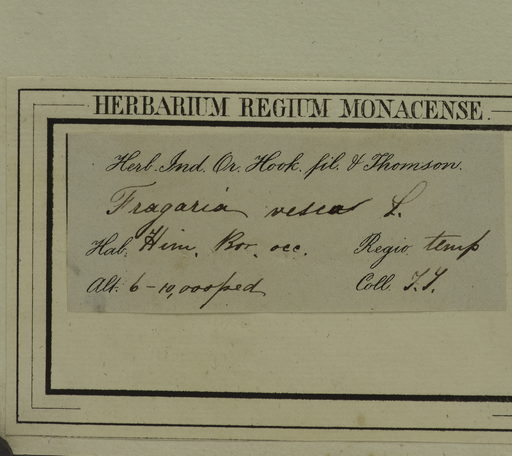 HERBARIUM REGIUM MONACENSE.
Herb. Ind. Or. Hook. fil. & Thomson.
Fragaria vesca L.
Hab. Him. Bor. occ. Regio temp
Alt: 6-10,000 ped Coll. T.T.